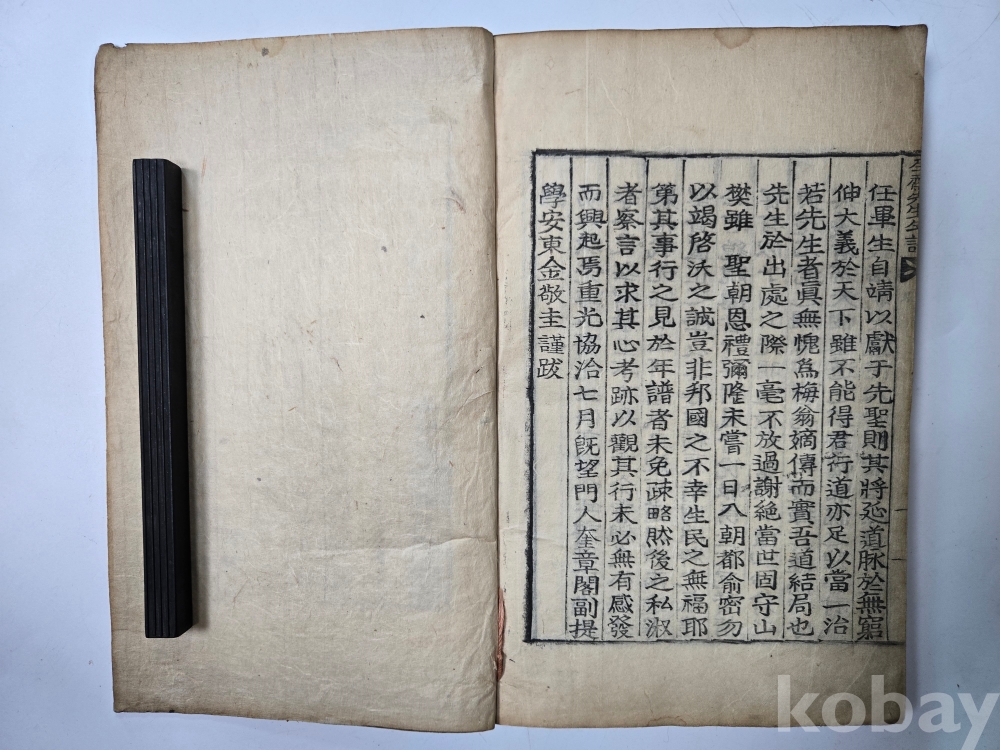 任畢生自靖以獻于先聖則其將延道脉於無窮
伸大義於天下雖不能得君行道亦足以當一治
若先生者眞無愧爲梅翁嫡傳而實吾道結局也
先生於出處之際一毫不放過謝絶當世固守山
樊雖 聖朝恩禮彌隆未嘗一日入朝都俞密勿
以竭啓沃之誠豈非邦國之不幸生民之無福耶
第其事行之見於年譜者未免疎略然後之私淑
者察言以求其心考跡以觀其行未必無有感發
而興起焉重光協洽七月旣望門人奎章閣副提
學安東金敬圭謹跋
全齋先生年譜
kobay